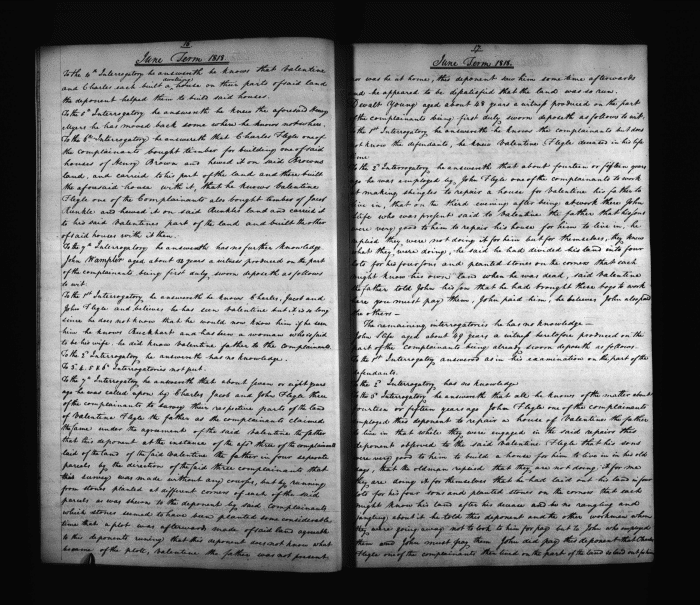 16
June Term 1818.
To the 4th Interrogatory he answereth he knows that Valentine
dwelling
and Charles each built a house on their parts of said land
the deponent helped them to build said houses.
To the 5th Interrogatory he answereth he knew the aforesaid Henry
Myers he has moved back some where he knows not where.
To the 6th Interrogatory he answereth that Charles Flyle one of
the complainants bought timber for building one of said
houses of Henry Brown and hewed it on said Browns
land, and carried to his part of the land and there built
the aforesaid house with it, that he knows Valentine
Flyle one of the Complainants also bought timber of Jacob
Runkle and hewed it on said Runkles land and carried it
to his said Valentines part of the land and built the other
of said houses with it then.
To the 7th Interrogatory he answereth has no further knowledge
John Wampler aged about years a witness produced on the part
of the complainants being first duly sworn deposeth as follows
to wit.
To the 1st Interrogatory he answereth he knows Charles, Jacob and
John Flyle and believes he has seen Valentine but it is so long
since he does not know that he would now know him if he seen
him he knows Rinehart and has seen a woman who is said
to be his wife. he did know Valentine father to the complainants
To the 2d Interrogatory he answereth has no knowledge.
To 3. 4. 5 & 6th Interrogatories not put.
To the 7th Interrogatory he answereth that about seven or eight years
ago he was called upon by Charles Jacob and John Flyle three
of the complainants to survey their respective parts of the land
of Valentine Flyle the father as the complainants claimed
the same under the agreements of the said Valentine the father
that this deponent at the instance of the afsd three of the complainants
laid of the land of the said Valentine the father in four separate
parcels by the direction of the said three complainants that
this survey was made without any courses, but by running
from stones planted at different corners of each of the said
parcels as was shewn to the deponent by said complainants
which stones seemed to have been planted some considerable
time that a plot was afterwards made of said land agreeable
to this deponents runing that this deponent does not know what
became of the plots, Valentine the father was not present,
17
June Term 1818.
nor was he at home, this deponent saw him some time afterwards
and he appeared to be dissatisfied that the land was so run.
Dewalt Young aged about 48 years a witness produced on the part
of the complainants being first duly sworn deposeth as follows to wit.
To the 1st Interrogatory he answereth he knows the complainants but does
not know the defendants, he knew Valentine Flyle deceased in his life
time
To the 2d Interrogatory he answereth that about fourteen or fifteen years
ago he was employed by John Flyle one of the complainants to work
at making shingles to repair a house for Valentine his father to
live in, that on the third evening after being at work there John
Slife who was present said to Valentine the father that his sons
were very good to him to repair his house for him to live in, he
replied they were not doing it for him but for themselves, they knew
what they were doing, he said he had divided his land into four
lots for his four sons and planted stones on the corners that each
might know his own land when he was dead, said Valentine
the father told John his son that he had brought these boys to work
here you must pay them, John paid him, he believes John also paid
the others —
The remaining interrogatories he has no knowledge —
John Slife aged about 49 years a witness heretofore produced on the
part of the complainants being already sworn deposeth as follows.
To the 1st Interrogatory answered as in his examination on the part of the
defendants.
To the 2d Interrogatory has no knowledge
To the 3d Interrogatory he answereth that all he knows of the matter about
fourteen or fifteen years ago John Flyle one of the complainants
employed this deponent to repair a house of Valentine the father
to live in that while they were engaged in the said repair this
deponent observed to the said Valentine Flyle that his sons
were very good to him to build a house for him to live in in his old
days, that the old man replied that they are not doing it for me
they are doing it for themselves that he had laid out his land in four
lots for his four sons and planted stones on the corner that each
might know his land after his decease and be no rangling and
jangling about it he told this deponent and the other workmen when
they were going away not to look to him for pay but to John who employed
them and John must pay them John did pay this deponent that Charles
Flyle one of the complainants then lived on the part of the land